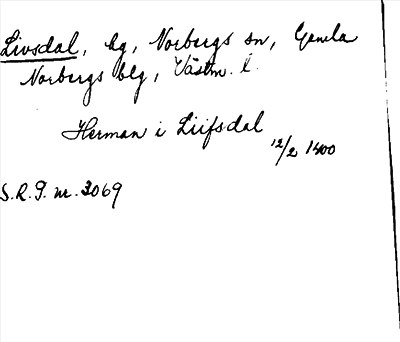 Livsdal, hg, Norbergs sn, Gamla
Norbergs blg, Västm. l.
Herman i Liifsdal
12/2 1400
S.R.P. nr. 3069